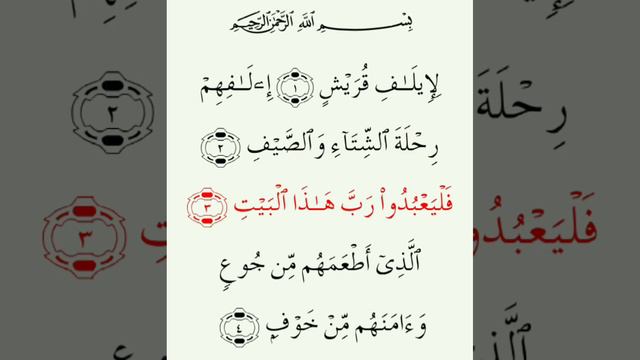 بِسْمِ ٱللَّهِ ٱلرَّحْمَٰنِ ٱلرَّحِيمِ
لِإِيلَـٰفِ قُرَيْشٍ ١ إِۦلَـٰفِهِمْ
رِحْلَةَ ٱلشِّتَآءِ وَٱلصَّيْفِ ٢
فَلْيَعْبُدُوا۟ رَبَّ هَـٰذَا ٱلْبَيْتِ ٣
ٱلَّذِىٓ أَطْعَمَهُم مِّن جُوعٍ
وَءَامَنَهُم مِّنْ خَوْفٍۭ ٤